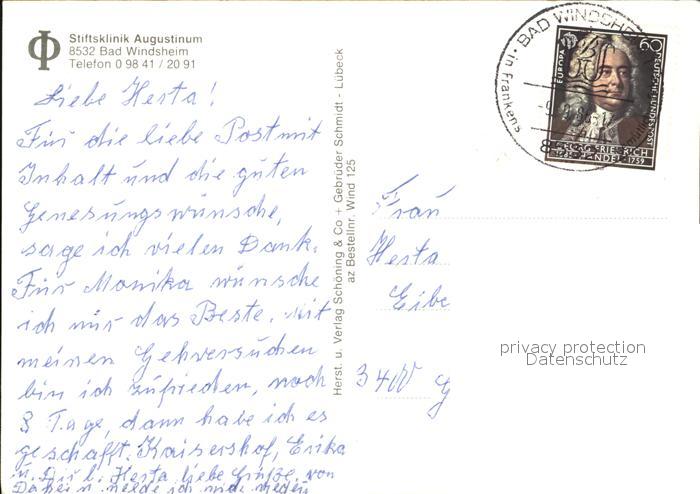 Stiftsklinik Augustinum
8532 Bad Windsheim
Telefon 0 98 41 / 20 91
Liebe Herta!
Für die liebe Post mit
Inhalt und die guten
Genesungswünsche,
sage ich vielen Dank.
Für Monika wünsche
ich nur das Beste. Mit
meinen Gehversuchen
bin ich zufrieden, noch
8 Tage, dann habe ich es
geschafft. Kaisershof, Erika
u. Dir l. Herta liebe Grüße. von
Daheim melde ich mich wieder
Herst. u. Verlag Schöning & Co + Gebrüder Schmidt - Lübeck
az Bestellnr. Wind 125
BAD WINDSHEIM
in Frankens
EUROPA
60
DEUTSCHE BUNDESPOST
GEORG FRIEDRICH
HÄNDEL 1759
Frau
Herta
Eibe
3400 G
privacy protection
Datenschutz